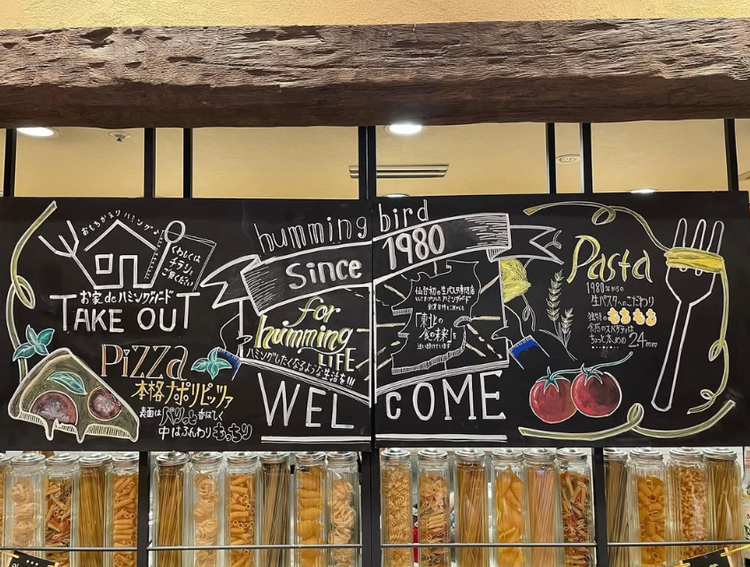 おもちかえりハミング♪
くわしくは
チラシを
ご覧ください
お家deハミングバード
TAKE OUT
PiZZa
本格ナポリピッツァ
表面はパリッと香ばしく
中はふんわりもっちり
humming bird
Since 1980
for
humming
LIFE
ハミングしたくなるような生活を!!!
仙台初の生パスタ専門店
「東北の
食の未来」を
WELCOME
Pasta
1980年からの
生パスタへのこだわり
独特の
食感のスパゲティは
ちょっと太めの
2.4mm